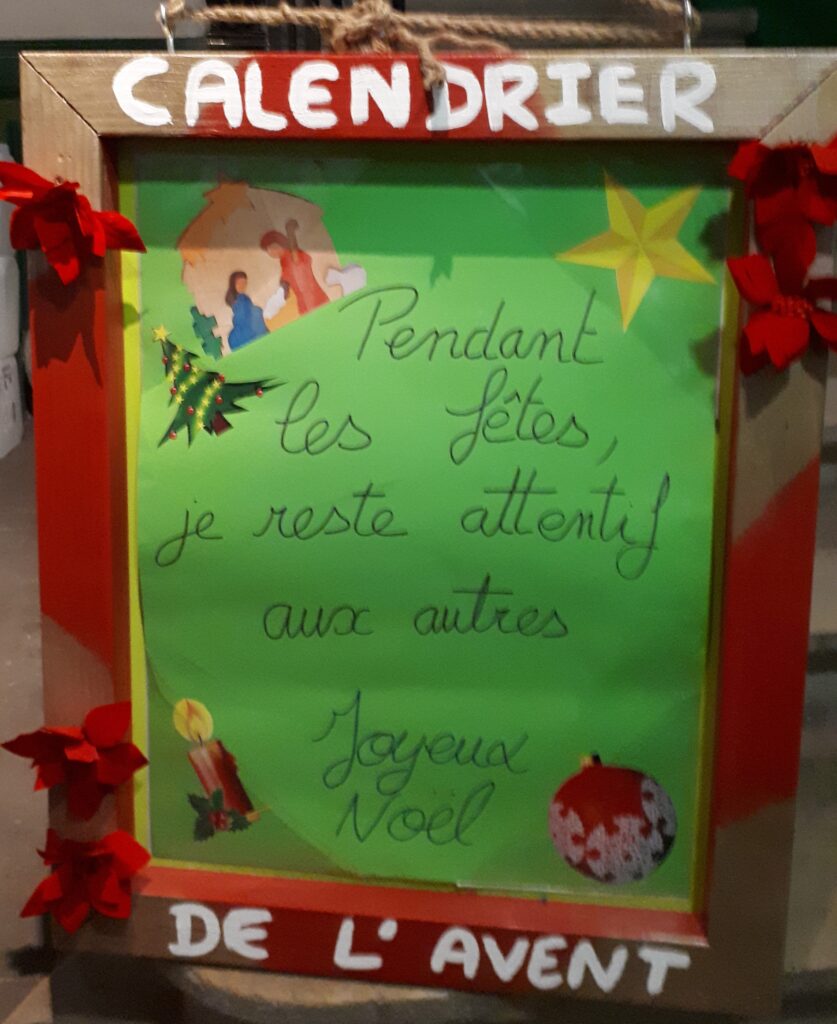 CALENDRIER
Pendant
les fêtes,
je reste attentif
aux autres
Joyeux
Noël
DE L'AVENT